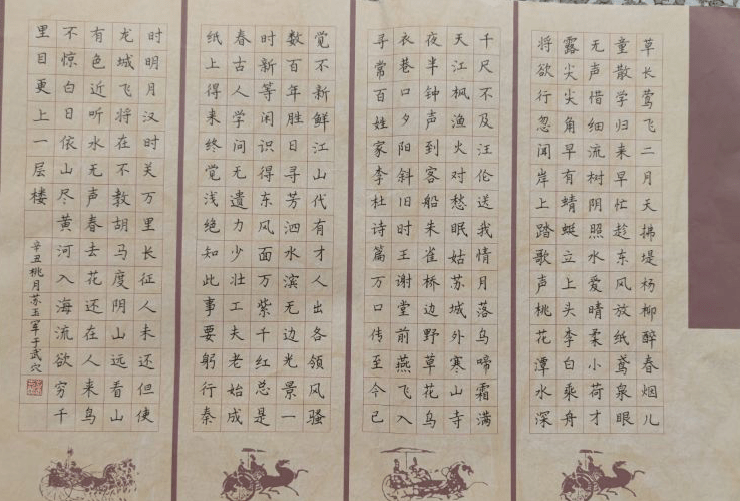 草长莺飞二月天拂堤杨柳醉春烟儿
童散学归来早忙趁东风放纸鸢泉眼
无声惜细流树阴照水爱晴柔小荷才
露尖尖角早有蜻蜓立上头李白乘舟
将欲行忽闻岸上踏歌声桃花潭水深
千尺不及汪伦送我情月落乌啼霜满
天江枫渔火对愁眠姑苏城外寒山寺
夜半钟声到客船朱雀桥边野草花乌
衣巷口夕阳斜旧时王谢堂前燕飞入
寻常百姓家李杜诗篇万口传至今已
觉不新鲜江山代有才人出各领风骚
数百年胜日寻芳泗水滨无边光景一
时新等闲识得东风面万紫千红总是
春古人学问无遗力少壮工夫老始成
纸上得来终觉浅绝知此事要躬行秦
时明月汉时关万里长征人未还但使
龙城飞将在不教胡马度阴山远看山
有色近听水无声春去花还在人来鸟
不惊白日依山尽黄河入海流欲穷千
里目更上一层楼
辛丑桃月苏玉军于武穴